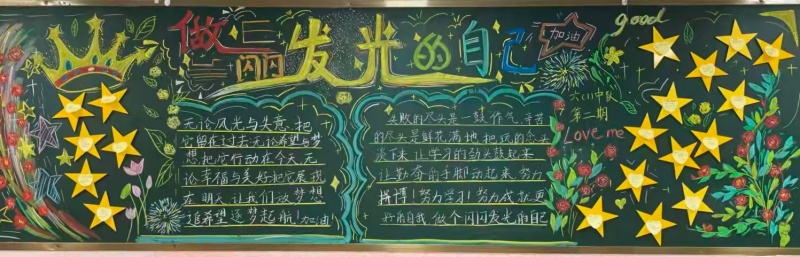 做闪闪发光的自己
加油
good
六(1)中队
第一期
Love me
无论风光与失意,把
它留在过去无论希望与梦
想把它行动在今天,无
论幸福与美好把它展现
在明天让我们放梦想
追希望逐梦起航!加油!
失败的尽头是一鼓作气,辛苦
的尽头是鲜花满地把玩的念头
淡下来让学习的劲头鼓起来
让勤奋的手脚动起来努力
拼搏!努力学习!努力成就更
好的自我做个闪闪发光的自己